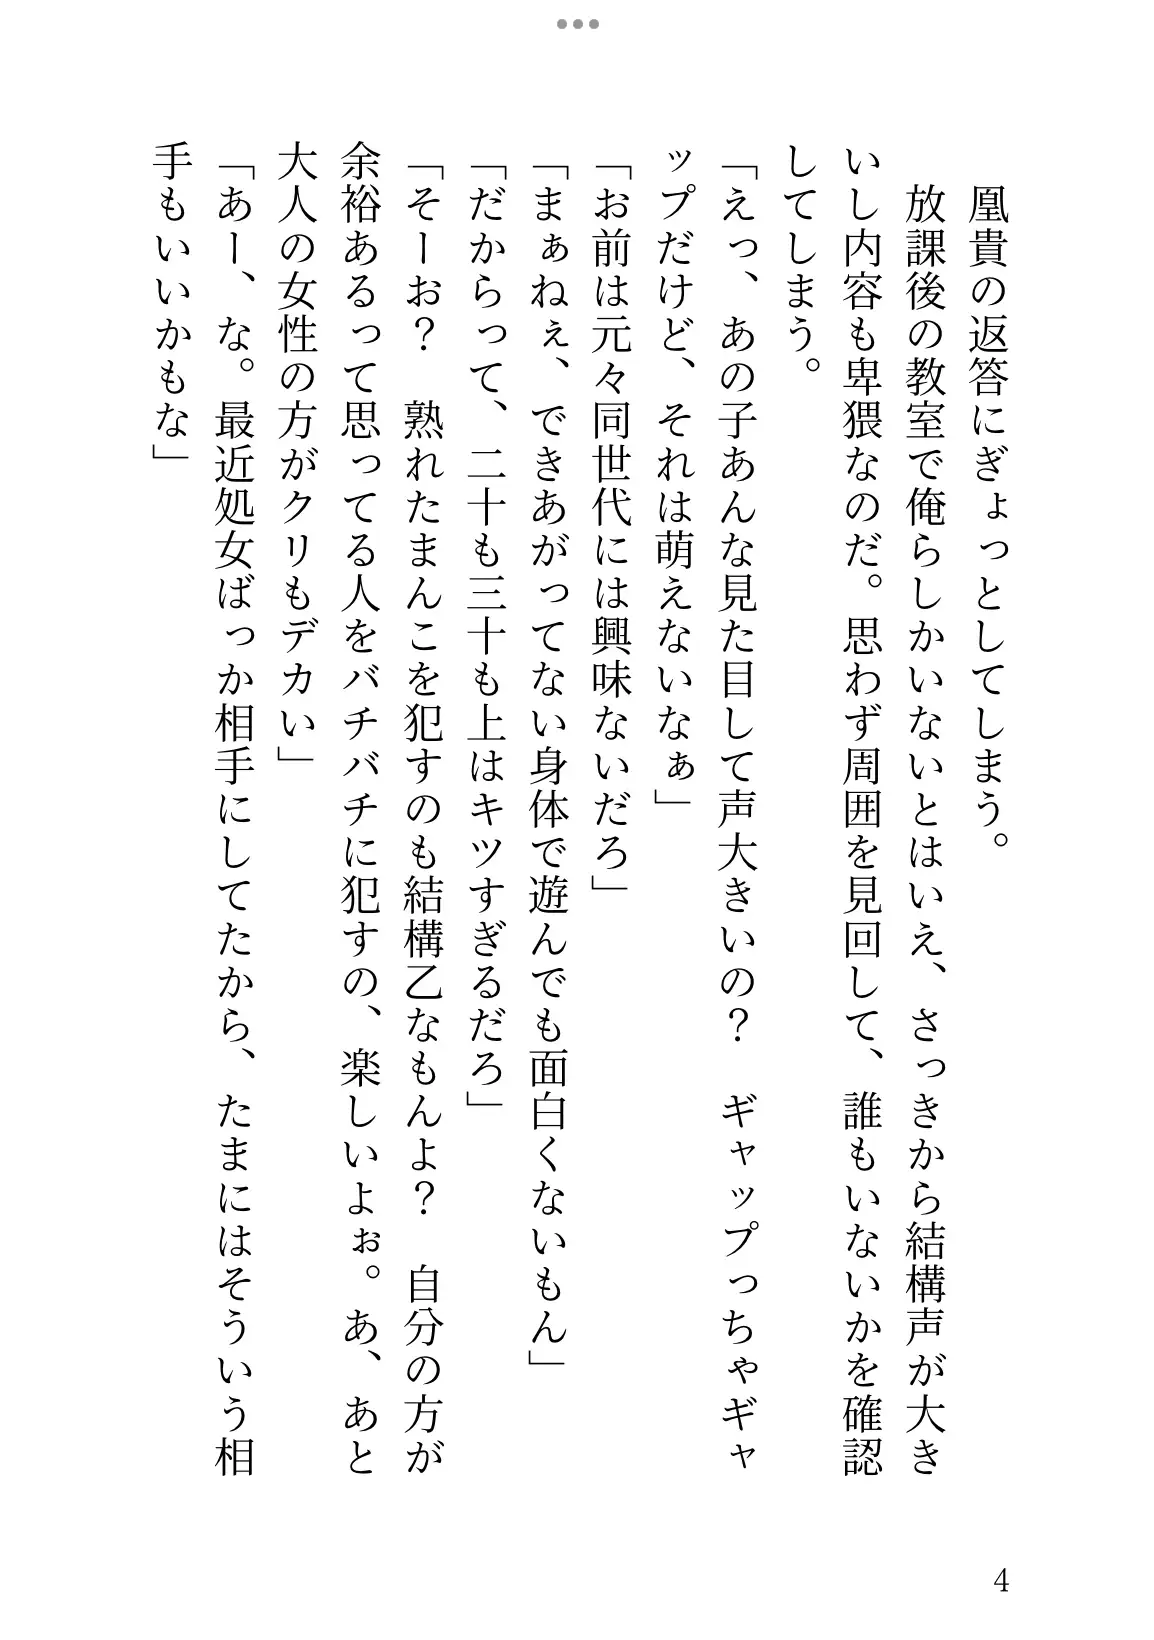 凰貴の返答にぎょっとしてしまう。
放課後の教室で俺らしかいないとはいえ、さっきから結構声が大き
いし内容も卑猥なのだ。思わず周囲を見回して、誰もいないかを確認
してしまう。
「えっ、あの子あんな見た目して声大きいの？　ギャップっちゃギャ
ップだけど、それは萌えないなぁ」
「お前は元々同世代には興味ないだろ」
「まぁねぇ、できあがってない身体で遊んでも面白くないもん」
「だからって、二十も三十も上はキツすぎるだろ」
「そーお？　熟れたまんこを犯すのも結構乙なもんよ？　自分の方が
余裕あるって思ってる人をバチバチに犯すの、楽しいよぉ。あ、あと
大人の女性の方がクリもデカい」
「あー、な。最近処女ばっか相手にしてたから、たまにはそういう相
手もいいかもな」
4